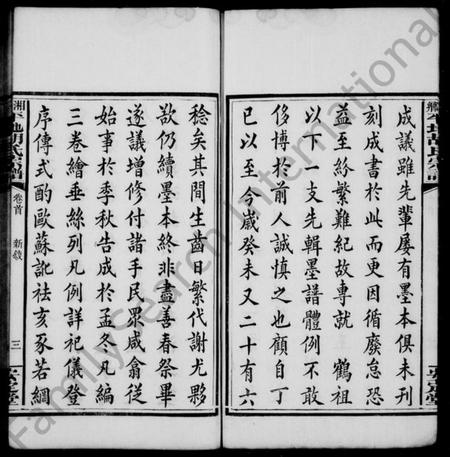 成議雖先輩屢有墨本俱未刊
刻成書於此而更因循廢怠恐
益至紛繁難紀故專就　鶴祖
以下一支先輯墨譜體例不敢
侈博於前人誠慎之也顧自丁
巳以至今歲癸未又二十有六
稔矣其間生齒日繁代謝尤夥
欲仍續墨本終非盡善春祭畢
遂議增修付諸手民眾咸翕從
始事於季秋告成於孟冬凡編
三卷繪垂絲列凡例詳祀儀登
序傳式酌歐蘇訛祛亥豕若綱
卷首　新敘
三
FamilySearch International